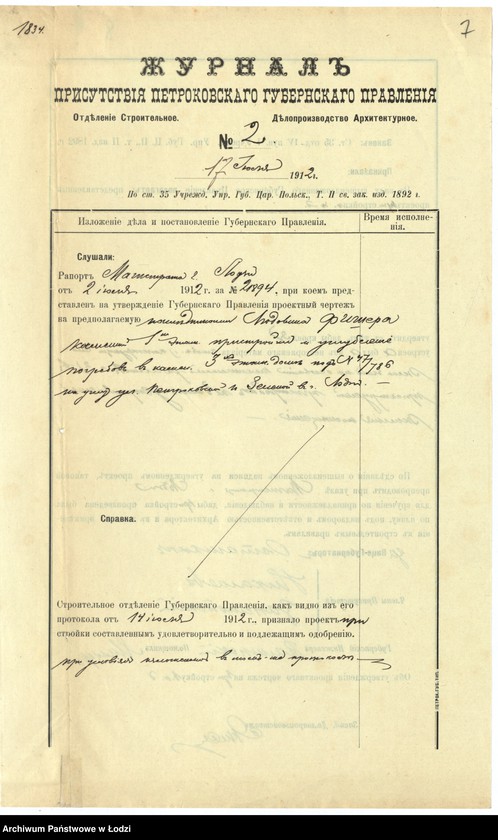 1834.
7
ЖУРНАЛЪ
ПРИСУТСТВІЯ ПЕТРОКОВСКАГО ГУБЕРНСКАГО ПРАВЛЕНІЯ
Отдѣленіе Строительное. Дѣлопроизводство Архитектурное.
№ 2.
17 Іюня 1912 г.
По ст. 35 Учрежд. Упр. Губ. Цар. Польск., Т. II св. зак. изд. 1892 г.
Изложеніе дѣла и постановленіе Губернскаго Правленія.
Время исполненія.
Слушали:
Рапортъ Магистрата г. Лодзи
отъ 2 іюня 1912 г. за № 20894, при коемъ пред-
ставленъ на утвержденіе Губернскаго Правленія проектный чертежъ
на предполагаемую Людвика Фишера
каменной 1 этаж. пристройки и углубленіе
погребовъ въ камен. 3 этажн. домѣ подъ № 47/786
на углу ул. Петроковской и Зеленой въ г. Лодзи. —
Справка.
Строительное отдѣленіе Губернскаго Правленія, какъ видно изъ его
протокола отъ 14 іюня 1912 г., признало проектъ при
стройки составленнымъ удовлетворительно и подлежащимъ одобренію.
при условіи въ протоколѣ
ПЕТРОК.ГУБ.ТИП.
Archiwum Państwowe w Łodzi